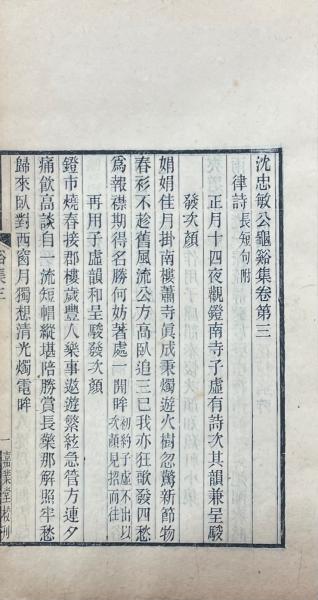 沈忠敏公龜谿集卷第三
律詩長短句附
正月十四夜觀鐙南寺子虛有詩次其韻兼呈駿
發次顏
娟娟佳月掛南樓蕭寺眞成秉燭遊火樹忽驚新節物
春衫不趁舊風流公方高臥追三已我亦狂歌發四愁
爲報襟期得名勝何妨著處一開眸初約子虛不出以次顏見招而往
再用子虛韻和呈駿發次顏
鐙市燒春接郡樓歲豐人樂事遨遊繁絃急管方連夕
痛飲高談自一流短帽縱堪陪勝賞長檠那解照牢愁
歸來臥對西窗月獨想淸光燭電眸
谿集三
一
嘉業堂校刊